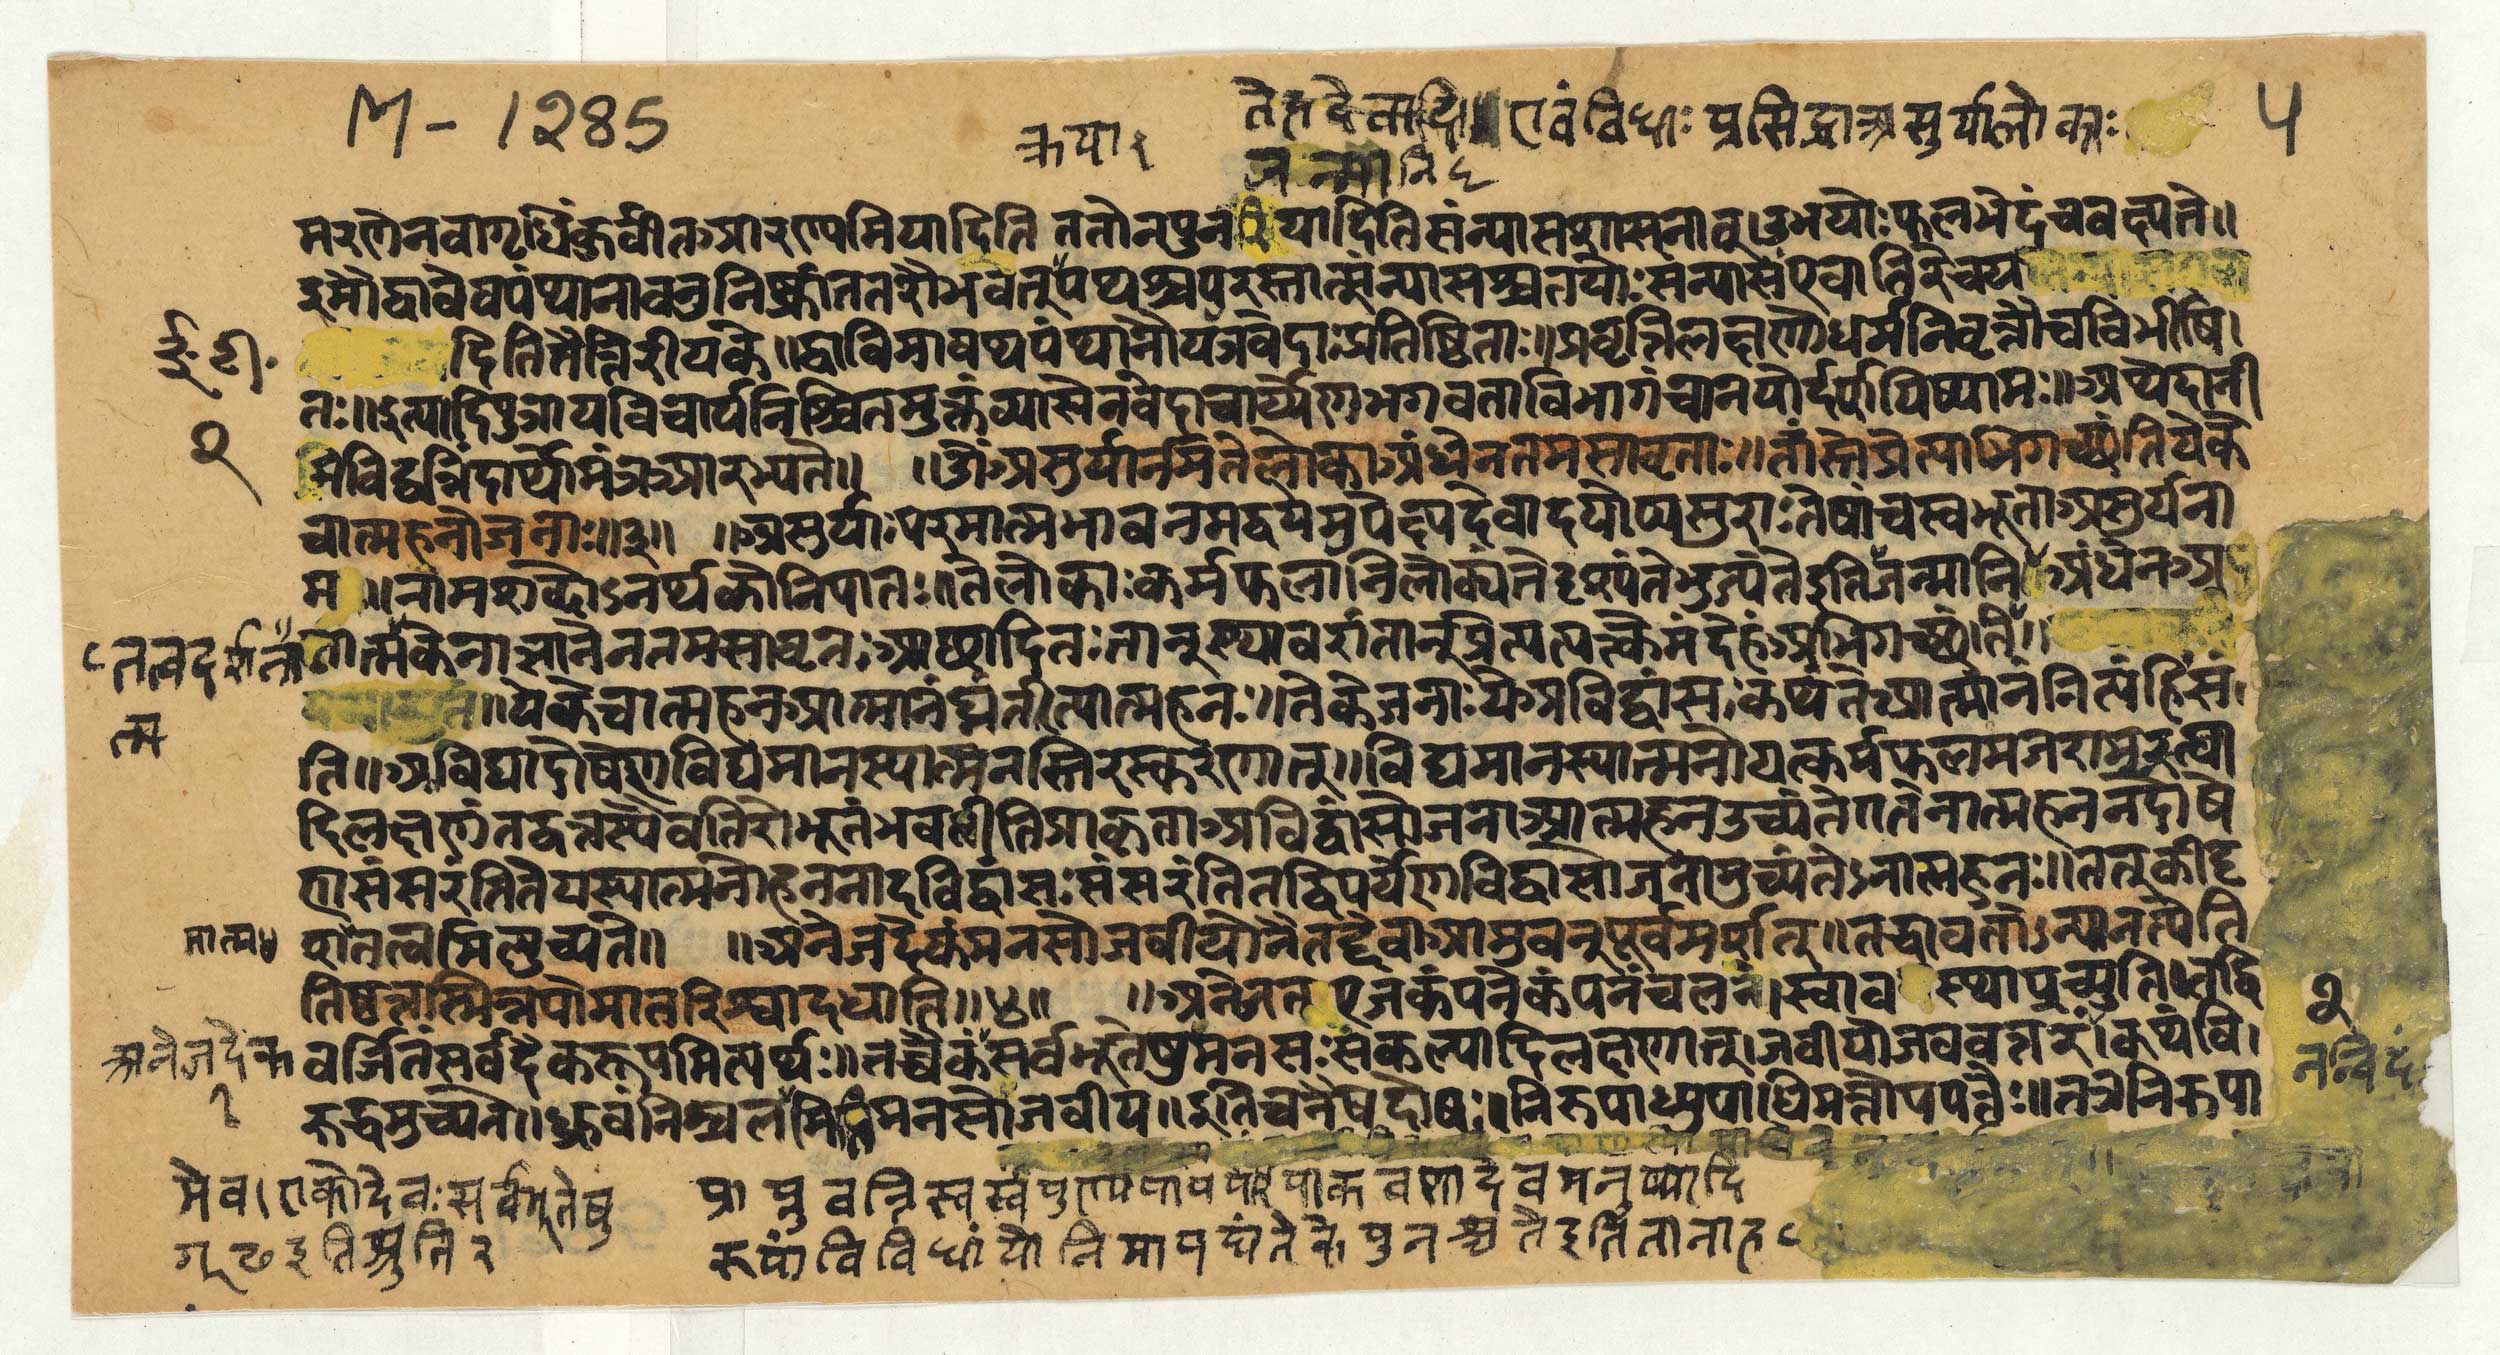 M-1285
५
तेहदेवादि॥ एवंविधाः प्रसिद्धाअसुर्यालोकाः
जन्मानि
मरणेनवागृधिंकुर्वीतआरण्यमियादितिततोनपुनरियादितिसंन्यासशासनात्।उभयोःफलभेदंचवक्ष्यते॥
इमौद्वावेवपंथानावनुनिष्क्रांततरौभवतःपथश्चपुरस्तात्संन्यासश्चतयोःसंन्यासएवातिरेचय
दितितैत्तिरीयके॥द्वाविमावथपंथानौयत्रवेदाःप्रतिष्ठिताः॥प्रवृत्तिलक्षणोधर्मोनिवृत्तौचविभाषि।
ई॰टी॰
२
तः॥इत्यादिपुत्रायविचार्यनिश्चितमुक्तंव्यासेनवेदाचार्य्येणभगवताविभागंचानयोर्दर्शयिष्यामः॥अथेदानी
मविद्वन्निंदार्थोमंत्रआरभ्यते॥ ॥ॐअसुर्यानामतेलोकाअंधेनतमसावृताः॥तांस्तेप्रेत्याभिगच्छंतियेके
चात्महनोजनाः॥३॥ ॥असुर्याःपरमात्मभावनमद्वयमपेक्ष्यदेवादयोप्यसुराःतेषांचस्वभूताअसुर्यना
म॥नामशब्दोऽनर्थकोनिपातः॥तेलोकाःकर्मफलानिलोक्यंतेदृश्यंतेभुज्यंतेइतिजन्मानिअंधेनअ
तत्वदर्शना
त्म
त्मकेनाज्ञानेनतमसावृतःआच्छादितःतान्स्थावरांतान्प्रेत्यत्यक्त्वेमंदेहंअभिगच्छंति॥
॥येकेचात्महनआत्मानंघ्नंतीत्यात्महनः॥तेकेजनाःयेअविद्वांसःकथंतेआत्मानंनित्यंहिंसं।
ति॥अविद्यादोषेणविद्यमानस्यात्मनस्तिरस्करणात्॥विद्यमानस्यात्मनोयत्कर्मफलमजरामरत्वा
दिलक्षणंतद्धतस्यैवतिरोभूतंभवतीतिप्राकृताअविद्वांसोजनाआत्महनउच्यंतेएतेनात्महननदोषे
णसंसरंतितेयस्यात्मनोहननादविद्वांसःसंसरंतितद्विपर्ययेणविद्वांसोजनामुच्यंतेऽनात्महनः॥तत्कीदृ
शंतत्वमित्युच्यते॥ ॥अनेजदेकंमनसोजवीयोनैनद्देवाआप्नुवन्पूर्वमर्शत्॥तद्धावतोऽन्यानत्येति
मात्म
तिष्ठत्तस्मिन्नपोमातरिश्वादधाति॥४॥ ॥अनेजत्एजृकंपनेकंपनंचलनं।स्वावस्थाप्रच्युतिःतद्वि
अनेजदेक
१
वर्जितंसर्वदैकरूपमित्यर्थः॥तच्चैकंसर्वभूतेषुमनसःसंकल्पादिलक्षणात्।जवीयोजववत्तरं।कथंवि।
नन्विदं
रुद्धमुच्यते॥ध्रुवंनिश्चलमितिमनसोजवीय॥इतिचनैषदोषः॥निरुपाध्युपाधिमत्त्वोपपत्तेः॥तत्रनिरुपा
मेव।एकोदेवःसर्वभूतेषु
गूढइतिश्रुति२
प्राप्नुवन्तिस्वस्वपुण्यपापपरिपाकवशादेवमनुष्यादि
रूपांविविधांयोनिमापद्यंते पुनश्चते